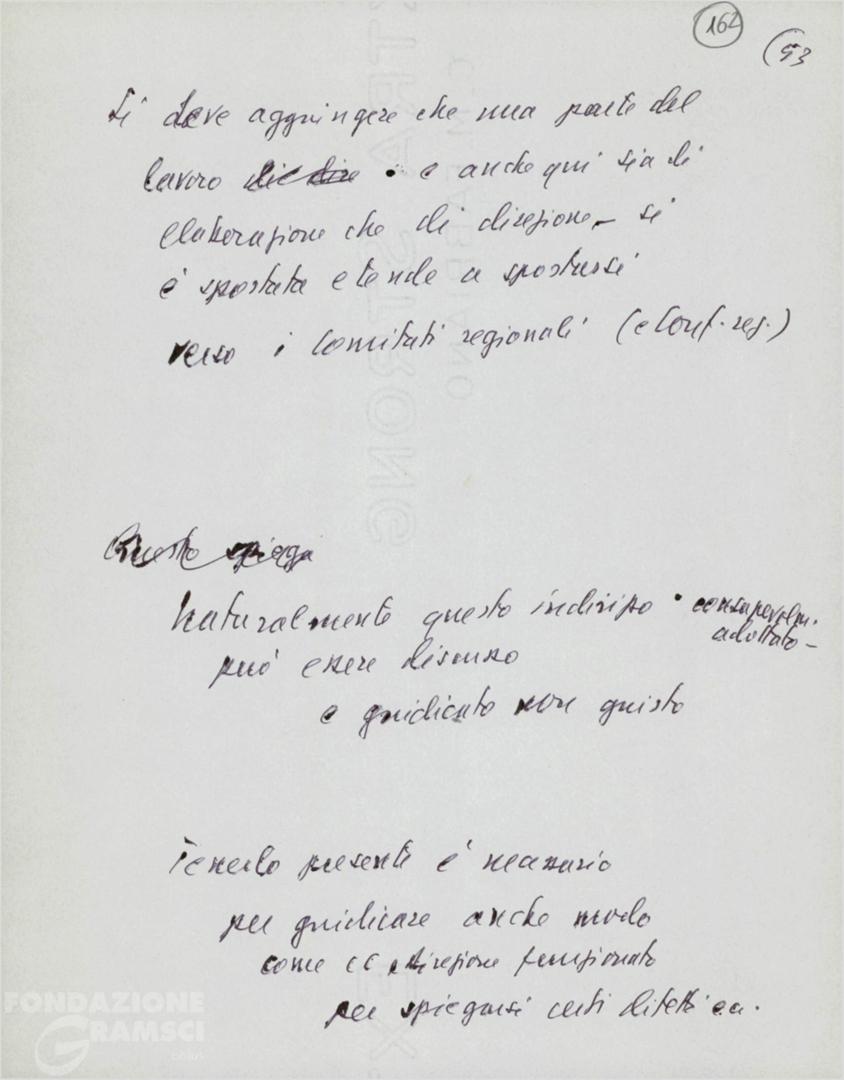 162
(53
Si deve aggiungere che una parte del
lavoro - e anche qui sia di
elaborazione che di direzione - si
è spostata e tende a spostarsi
verso i Comitati regionali (e Conf. reg.)
Questo spiega
Naturalmente questo indirizzo - consapevolm.
adottato -
può essere discusso
e giudicato non giusto
Tenerlo presente è necessario
per giudicare anche modo
come CC e Direzione funzionato
per spiegarsi certi difetti ecc.
FONDAZIONE
GRAMSCI
onlus